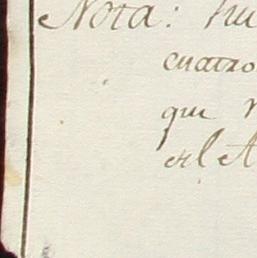 Nota: hu
cuatro
que
el A